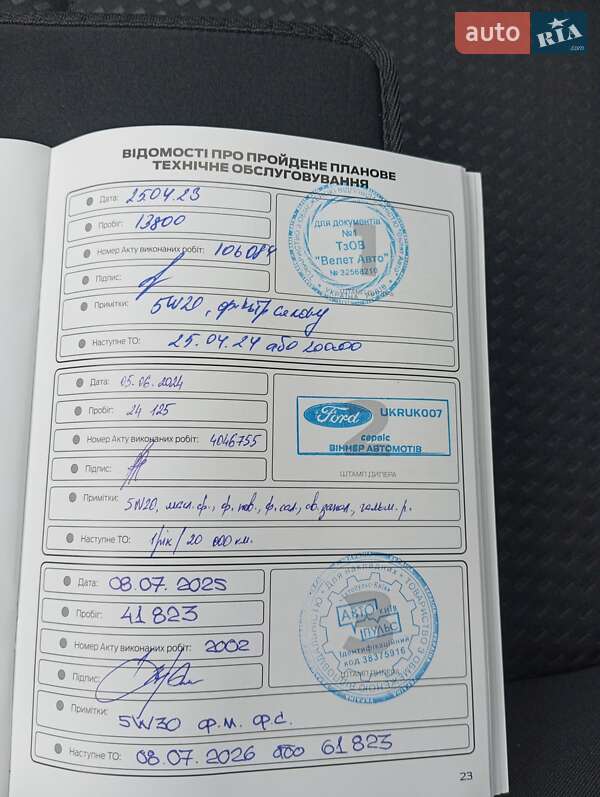 auto RIA .com
ВІДОМОСТІ ПРО ПРОЙДЕНЕ ПЛАНОВЕ
ТЕХНІЧНЕ ОБСЛУГОВУВАННЯ
Дата: 25.04.23
Пробіг: 13800
Номер Акту виконаних робіт: 106084
Підпис:
Для документів
№1
ТзОВ
"Велет Авто"
№ 22568210
УКРАЇНА
Примітки: 5W20, фільтр салону
Наступне ТО: 25.04.24 або 20000
Дата: 05.06.2024
Пробіг: 24 125
Номер Акту виконаних робіт: 4046755
Підпис:
Ford UKRUK007
сервіс
ВІННЕР АВТОМОТІВ
ШТАМП ДИЛЕРА
Примітки: 5W20, масл. ф., ф. пов., ф. сал., гальм. р.
Наступне ТО: 1рік / 20 000 км.
Дата: 08.07.2025
Пробіг: 41 823
Номер Акту виконаних робіт: 2002
Підпис:
Для накладних
АВТО Київ
ІПУЛЬС
Ідентифікаційний
код 38375916
ШТАМП ДИЛЕРА
Примітки: 5W30 ф.м. ф.с.
Наступне ТО: 08.07.2026 або 61 823
23